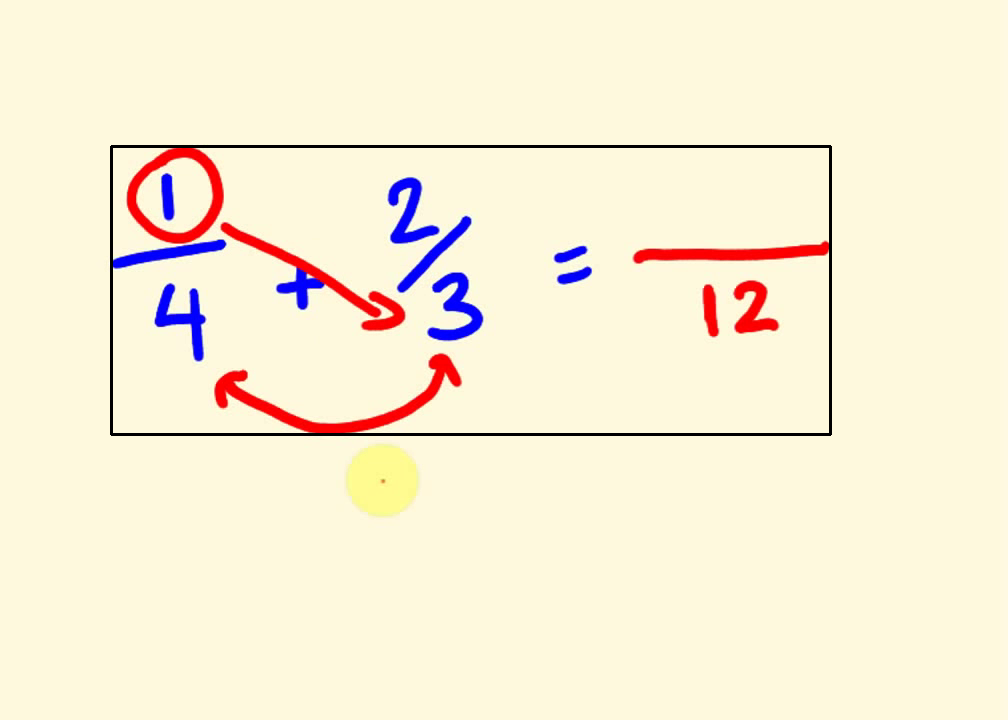 1/4 + 2/3 = /12